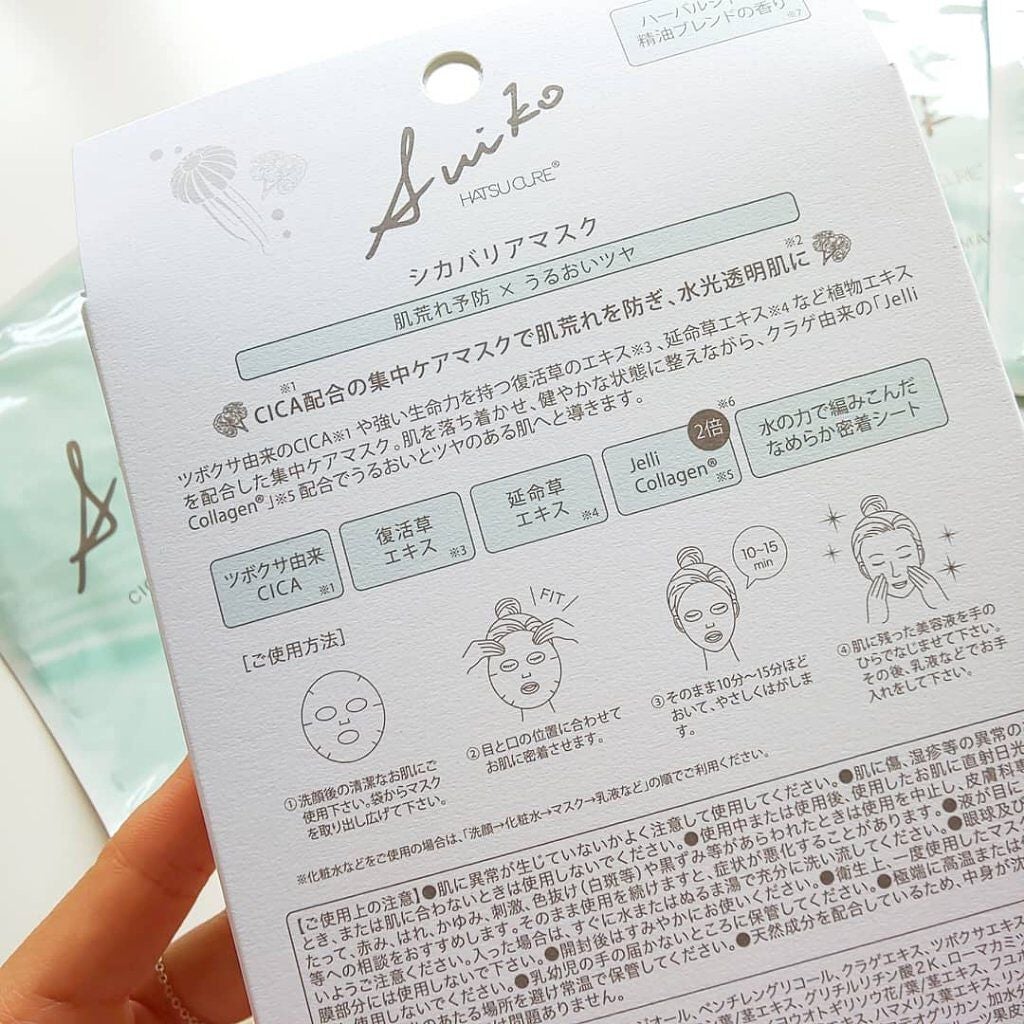 ハーバルシト
精油ブレンドの香り※7
Suiko
HATSU CURE®
シカバリアマスク
肌荒れ予防 × うるおいツヤ
CICA※1配合の集中ケアマスクで肌荒れを防ぎ、水光透明肌に※2
ツボクサ由来のCICA※1 や強い生命力を持つ復活草のエキス※3 、延命草エキス※4 など植物エキス
を配合した集中ケアマスク。肌を落ち着かせ、健やかな状態に整えながら、クラゲ由来の「Jelli
Collagen®」※5 配合でうるおいとツヤのある肌へと導きます。
ツボクサ由来
CICA ※1
復活草
エキス ※3
延命草
エキス ※4
2倍 ※6
Jelli
Collagen® ※5
水の力で編みこんだ
なめらか密着シート
[ご使用方法]
FIT
10~15
min
①洗顔後の清潔なお肌にご
使用下さい。袋からマスク
を取り出し広げて下さい。
②目と口の位置に合わせて
お肌に密着させます。
③そのまま10分〜15分ほど
おいて、やさしくはがしま
す。
④肌に残った美容液を手の
ひらでなじませて下さい。
その後、乳液などでお手
入れをして下さい。
※化粧水などをご使用の場合は、「洗顔→化粧水→マスク→乳液など」の順でご利用ください。
【ご使用上の注意】●肌に異常が生じていないかよく注意して使用してください。●肌に傷、湿疹等の異常の
とき、または肌に合わないときは使用しないでください。●使用中または使用後、使用したお肌に直射日光
たって、赤み、はれ、かゆみ、刺激、色抜け(白斑等)や黒ずみ等があらわれたときは使用を中止し、皮膚科専
等への相談をおすすめします。そのまま使用を続けますと、症状が悪化することがあります。●液が目に
いようご注意ください。入った場合は、すぐに水またはぬるま湯で充分に洗い流してください。●眼球及び
膜部分には使用しないで下さい。●開封後はすみやかにお使いください。●衛生上、一度使用したマス
使用しないでください。●乳幼児の手の届かないところに保管してください。●極端に高温または
のあたる場所を避け常温で保管してください。●天然成分を配合しているため、中身が沈
は問題ありません。
ジオール、ペンチレングリコール、クラゲエキス、ツボクサエキス